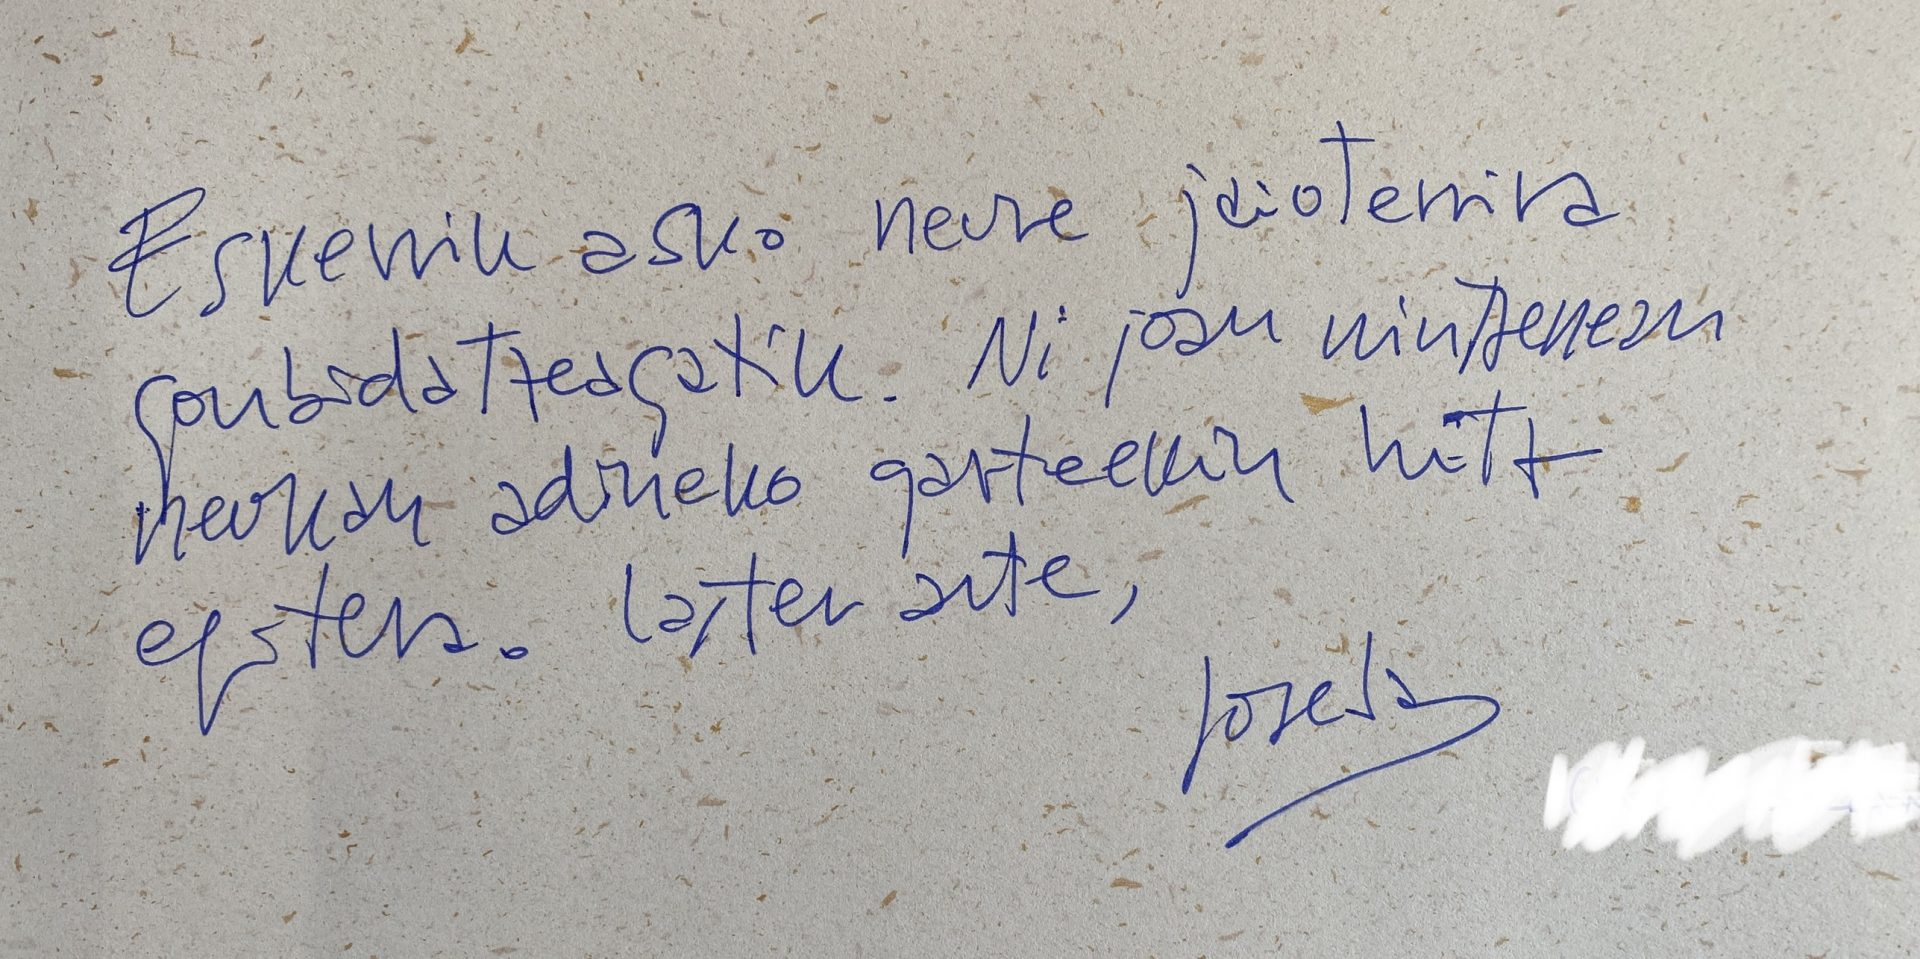 Eskerrik asko neure jaioterrira
gonbidatzeagatik. Ni joan nintzenean
neukan adineko gazteekin hitz
egitera. Laster arte,
Joseba